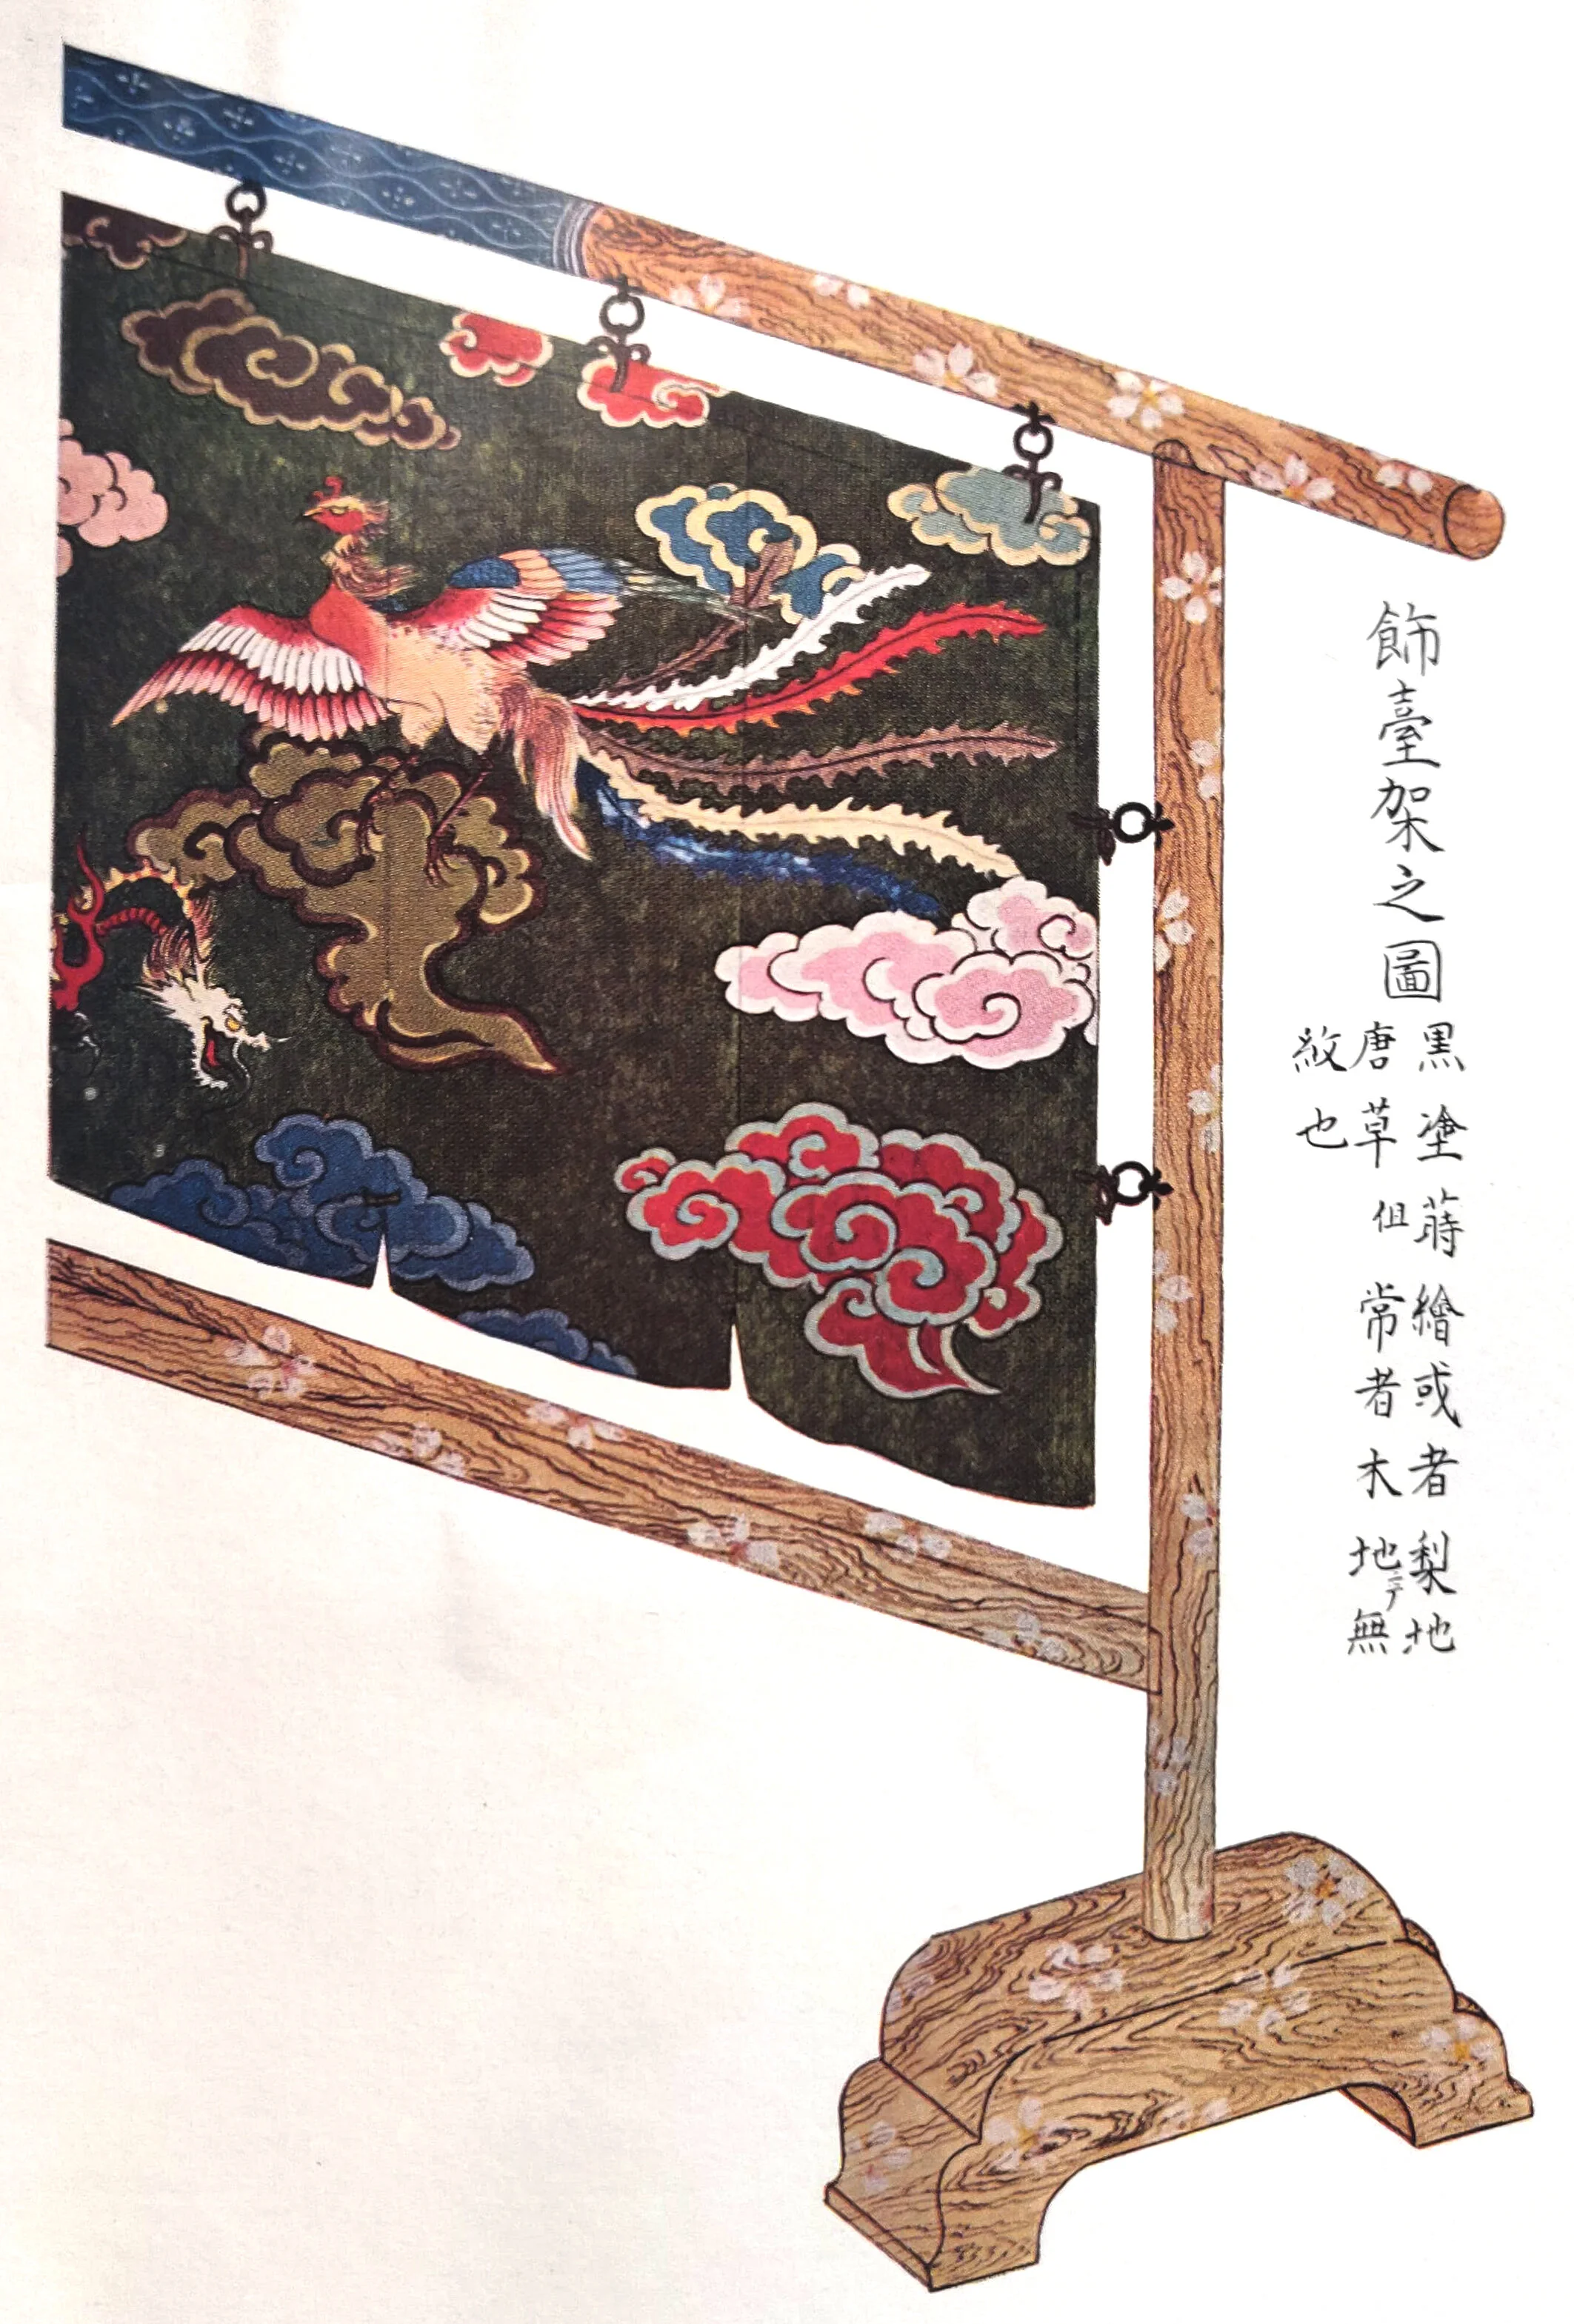 飾臺架之圖
黒塗蒔繪或者梨地
唐草但常者木地ニテ無
紋也